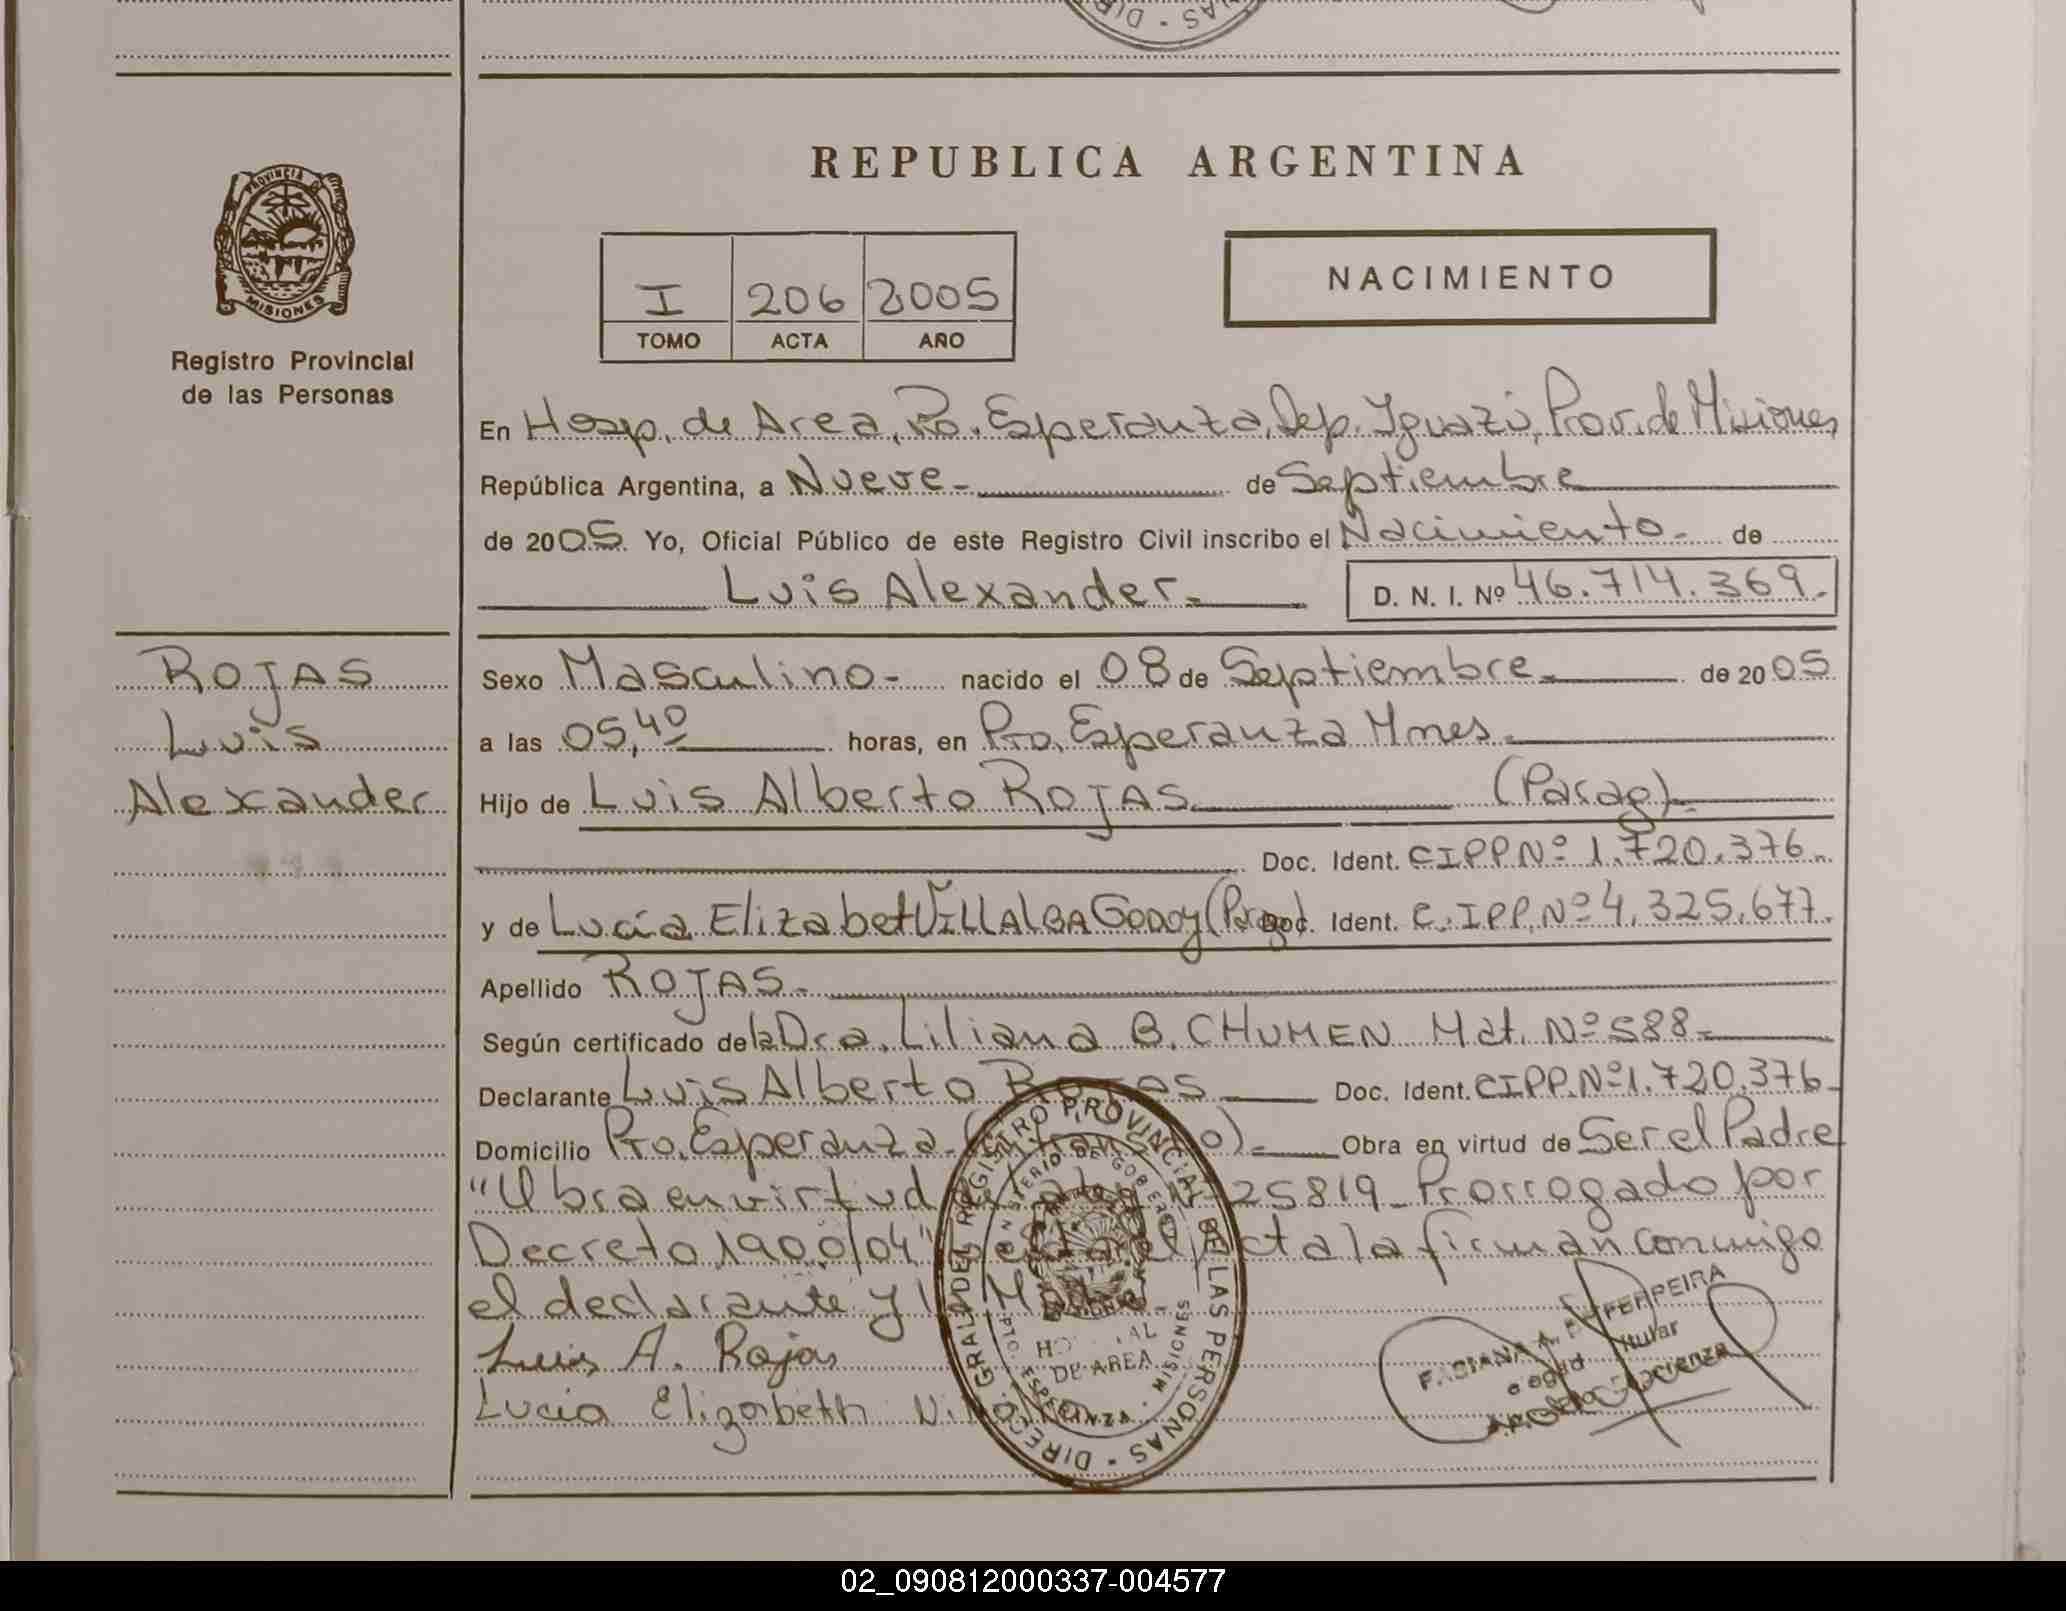 REPUBLICA ARGENTINA
PROVINCIA D
MISIONES
Registro Provincial
de las Personas
I 206 2005
TOMO ACTA AÑO
NACIMIENTO
En Hosp. de Area, Pto. Esperanza, Dep. Iguazú, Prov. de Misiones
República Argentina, a Nueve.- de Septiembre
de 2005. Yo, Oficial Público de este Registro Civil inscribo el Nacimiento.- de
Luis Alexander.- D. N. I. Nº 46.714.369.-
ROJAS
Luis
Alexander
Sexo Masculino.- nacido el 08 de Septiembre.- de 2005
a las 05,40 horas, en Pto. Esperanza Mnes.
Hijo de Luis Alberto ROJAS (Parag).-
Doc. Ident. CIPP Nº 1.720.376.-
y de Lucía Elizabet VILLALBA GODOY (Parag). Doc. Ident. C.IPP. Nº 4.325.677.
Apellido ROJAS.-
Según certificado de la Dra. Liliana B. CHUMEN Mat. Nº 588.-
Declarante Luis Alberto Rojas Doc. Ident. CIPP. Nº 1.720.376-
Domicilio Pto. Esperanza.- Obra en virtud de Ser el Padre
"Obra en virtud 25819 Prorrogado por
Decreto 1900/04" acta la firman conmigo
el declarante y
Luis A. Rojas
Lucia Elizabeth Villalba
DIREC. GRAL. DEL REGISTRO PROVINCIAL DE LAS PERSONAS
DE AREA
PTO. ESPERANZA - MISIONES
FABIANA A. FERREIRA
Titular
02_090812000337-004577